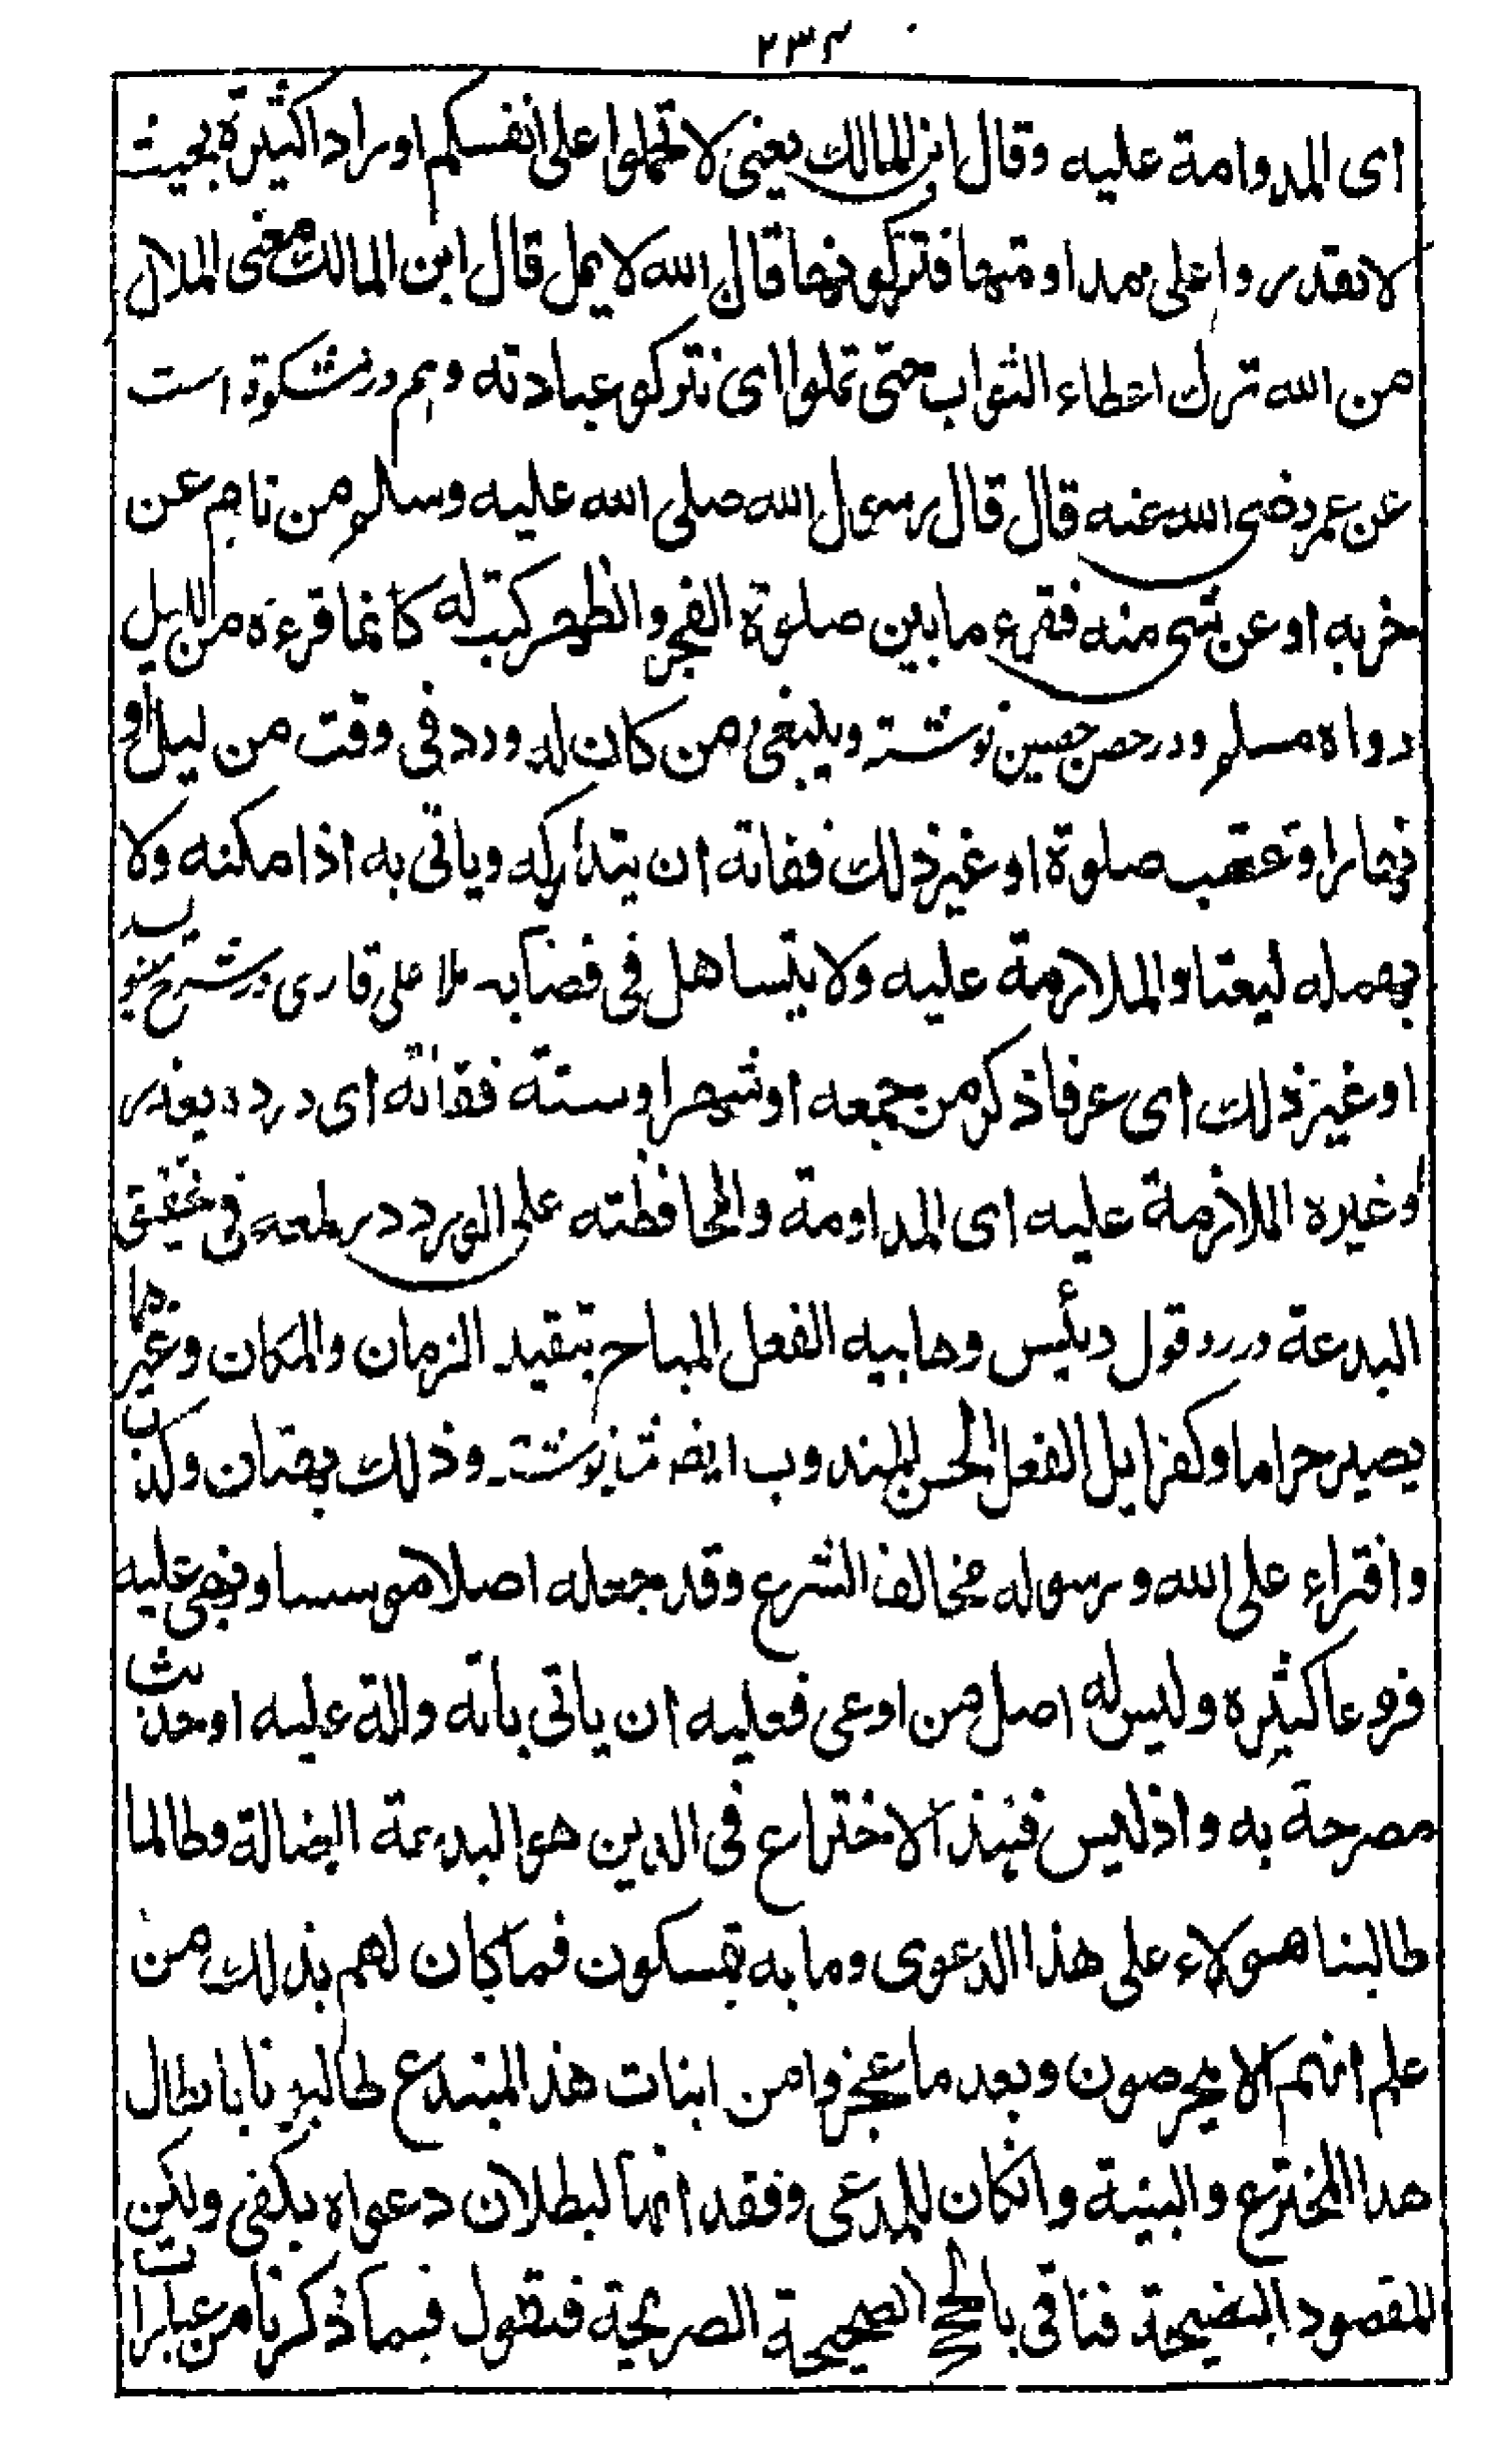 ۲۳۴
ای المدوامة علیه وقال ابن المالك یعنی لا تحملوا علی انفسکم اورادا کثیرة بحیث
لا تقدروا علی مداومتها فتترکونها قال الله لا یمل قال ابن المالك معنی الملال
من الله ترك اعطاء الثواب حتی تملوا ای تترکو عبادته وہم در مشکوة است
عن عمر رضی الله عنه قال قال رسول الله صلی الله علیه وسلم من نام عن
حزبه او عن شی منه فقرء ما بین صلوة الفجر والظهر کتب له کانما قرءه من اللیل
رواه مسلم ودر حصن حصین نوشته وینبغی من کان له ورد فی وقت من لیل او
نهار او عقب صلوة او غیر ذلك ففاته ان یتدارکه ویاتی به اذا مکنه ولا
یهمله لیعتاد الملازمة علیه ولا یتساهل فی قضایہ ملا علی قاری در شرح مینویسد
او غیر ذلك ای عرفا ذکر من جمعه او شهر او سنة ففاته ای ورده بعذر
او غیره الملازمة علیه ای المداومة والمحافظته علی الورد در لمعه فی تحقیق
البدعة در رد قول رئیس وهابیه الفعل المباح بتقید الزمان والمکان وغیرها
یصیر حراما وکفرا بل الفعل الحسن المندوب ایضا نوشته وذلك بهتان وکذب
وافتراء علی الله ورسوله مخالف الشرع وقد جعله اصلا موسسا وفرع علیه
فروعا کثیره ولیس له اصل من اوعی فعلیه ان یاتی بآیه دالة علیه او حدیث
مصرحة به واذ لیس فهذا الاختراع فی الدین هو البدعة الضالة وطالما
طالبنا هولاء علی هذا الدعوی وما به تمسکون فما کان لهم بذلك من
علم انهم الا یخرصون وبعد ما عجزوا من اثبات هذ المبتدع طالبونا بابطال
هدا المخترع والبینة وانکان للمدعی وفقدانها لبطلان دعواه یکفی ولکن
المقصود النضیحة فناتی بالحجج الصحیحة الصریحة فنقول فیما ذکرنا من عبارات